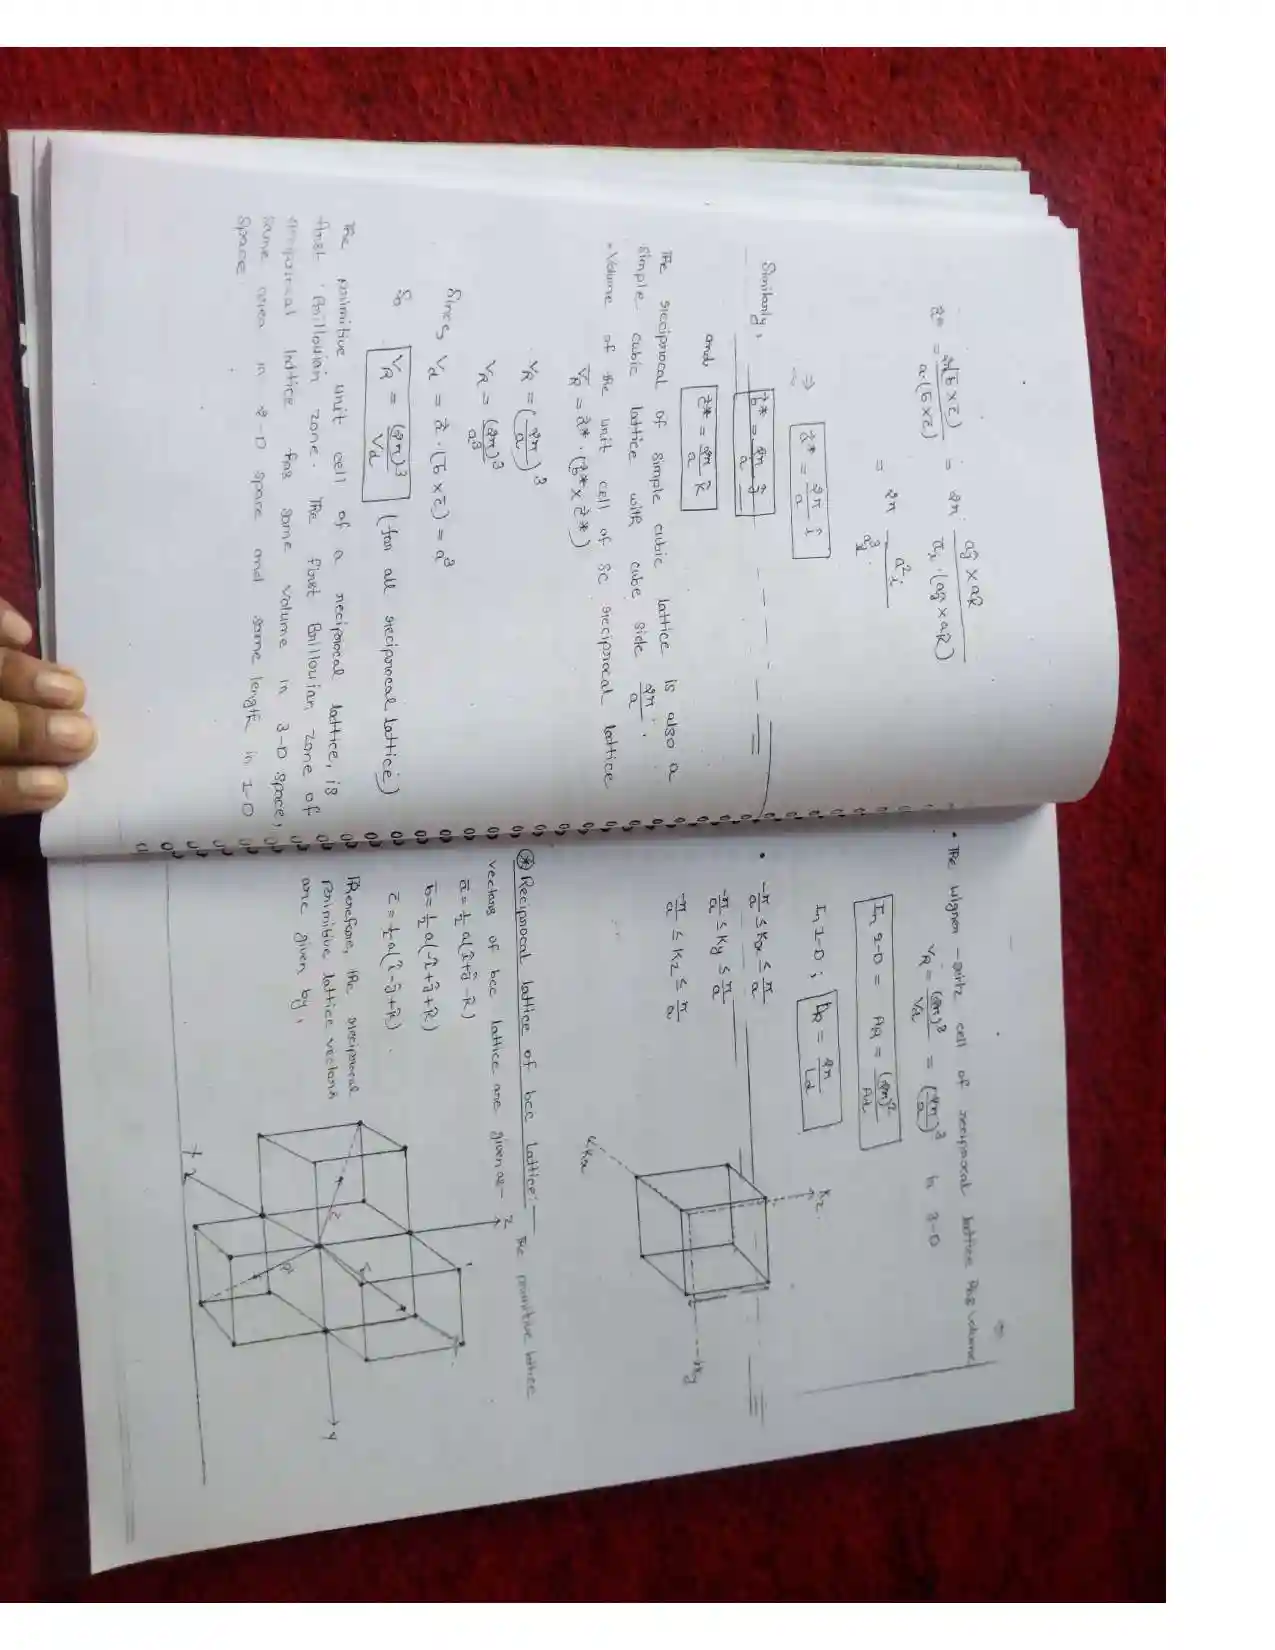 a* = 2π(b̄×c̄) / a·(b̄×c̄) = 2π · aĵ × ak̂ / aî·(aĵ × ak̂)
= 2π a²î / a³
⇒ a* = 2π/a î
Similarly, b* = 2π/a ĵ
and c* = 2π/a k̂
The reciprocal of simple cubic lattice is also a
simple cubic lattice with cube side 2π/a.
• Volume of the unit cell of sc reciprocal lattice
V_R = a*·(b*×c*)
V_R = (2π/a)³
V_R = (2π)³/a³
Since, V_d = a·(b×c) = a³
So V_R = (2π)³/V_d (for all reciprocal lattice)
The primitive unit cell of a reciprocal lattice, is
first Brillouian zone. The first Brillouian zone of
reciprocal lattice has same volume in 3-D space,
same area in 2-D space and same length in 1-D
space.
• The wigner-seitz cell of reciprocal lattice has volume
V_R = (2π)³/V_d = (2π/a)³ in 3-D
In 2-D = A_R = (2π)²/A_d
In 1-D; L_R = 2π/L_d
• -π/a ≤ Kx ≤ π/a
-π/a ≤ Ky ≤ π/a
-π/a ≤ Kz ≤ π/a
Kz
Kx
Ky
* Reciprocal lattice of bcc lattice:— The primitive lattice
vectors of bcc lattice are given as–
ā = ½a(î+ĵ-k̂)
b̄ = ½a(-î+ĵ+k̂)
c̄ = ½a(î-ĵ+k̂).
Therefore, the reciprocal
primitive lattice vectors
are given by,
z
y
x